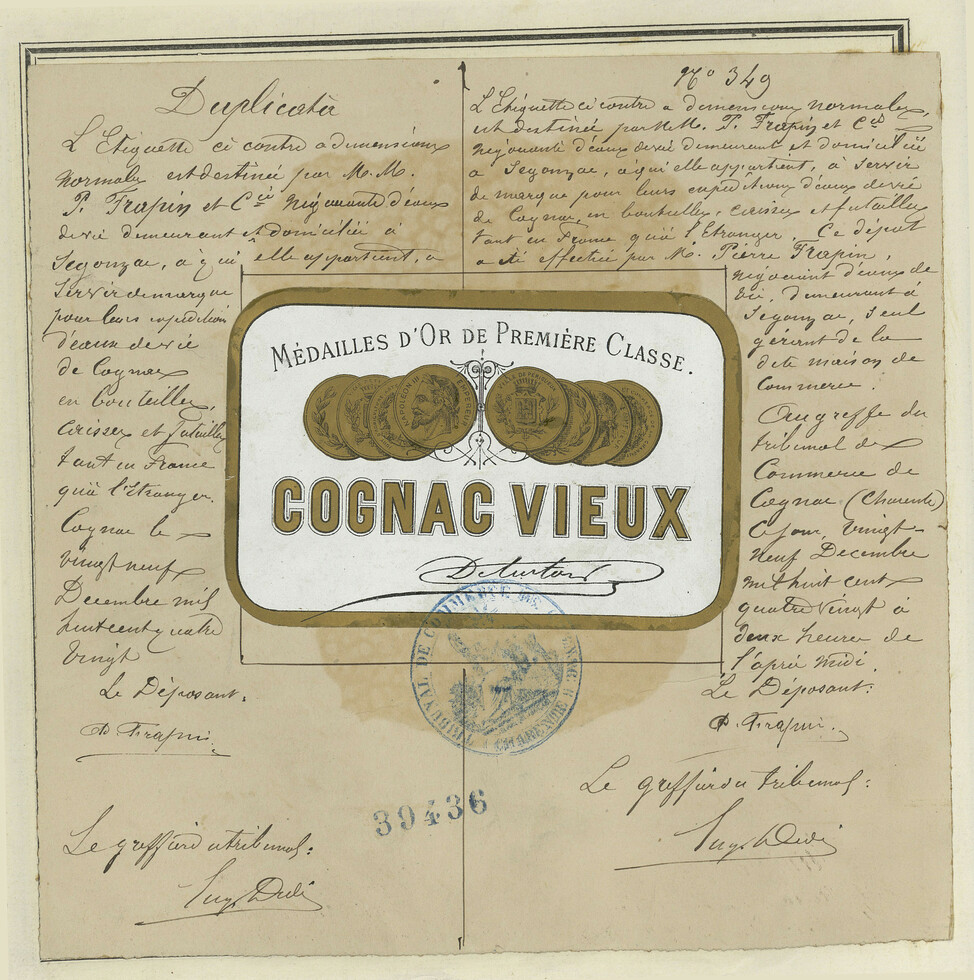 Duplicata
L'Etiquette ci contre a dimensions
normales est destinée par M.M.
P. Frapin et Cie Négociants d'eaux
de vie demeurant et domiciliés à
Segonzac, à qui elle appartient, à
servir de marque
pour leurs expéditions
d'eaux de vie
de Cognac
en bouteilles,
caisses et futailles
tant en France
qu'à l'Etranger.
Cognac le
vingt neuf
Decembre mil
huit cent quatre
vingt
Le Déposant:
P. Frapin.
Le greffier du tribunal:
No 349
L'Etiquette ci contre a dimensions normales,
est destinée par M.M. P. Frapin et Cie
négociants d'eaux de vie demeurant et domiciliés
à Segonzac, à qui elle appartient, à servir
de marque pour leurs expéditions d'eaux de vie
de Cognac, en bouteilles, caisses et futailles
tant en France qu'à l'Etranger. Ce dépôt
a été effectué par M. Pierre Frapin,
négociant d'eaux de
vie, demeurant à
Segonzac, seul
gérant de la
dite maison de
Commerce.
Au greffe du
tribunal de
Commerce de
Cognac (Charente)
Ce jour, vingt
neuf Decembre
mil huit cent
quatre vingt à
deux heures de
l'après midi.
Le Déposant:
P. Frapin.
Le greffier du tribunal:
MÉDAILLES D'OR DE PREMIÈRE CLASSE.
NAPOLÉON III EMPEREUR
COGNAC VIEUX
TRIBUNAL DE COMMERCE
CHARENTE
39436